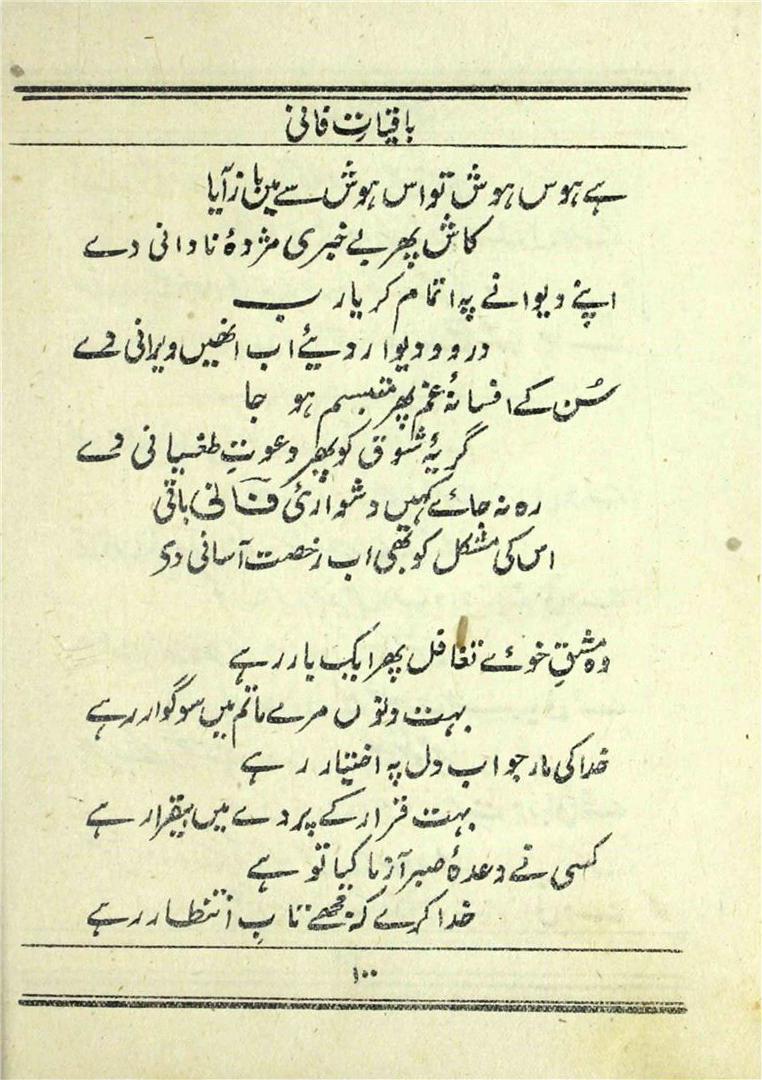 باقیاتِ فانی
ہے ہوس ہوش تو اس ہوش سے میں باز آیا
کاش پھر بے خبری مژدۂ نادانی دے
اپنے دیوانے پہ اتمام کر یارب
در و دیوار دیئے اب انھیں ویرانی دے
سُن کے افسانۂ غم پھر متبسم ہو جا
گریۂ شوق کو پھر دعوتِ طغیانی دے
رہ نہ جائے کہیں دشواریٔ فانیؔ باقی
اس کی مشکل کو بھی اب رخصت آسانی دی
وہ مشقِ خوئے تغافل پھر ایک بار رہے
بہت دنوں مرے ماتم میں سوگوار رہے
خدا کی مار جو اب دل پہ اختیار رہے
بہت قرار کے پردے میں بیقرار رہے
کسی نے وعدۂ صبر آزما کیا تو ہے
خدا کرے کہ مجھے تابِ انتظار رہے
۱۰۰